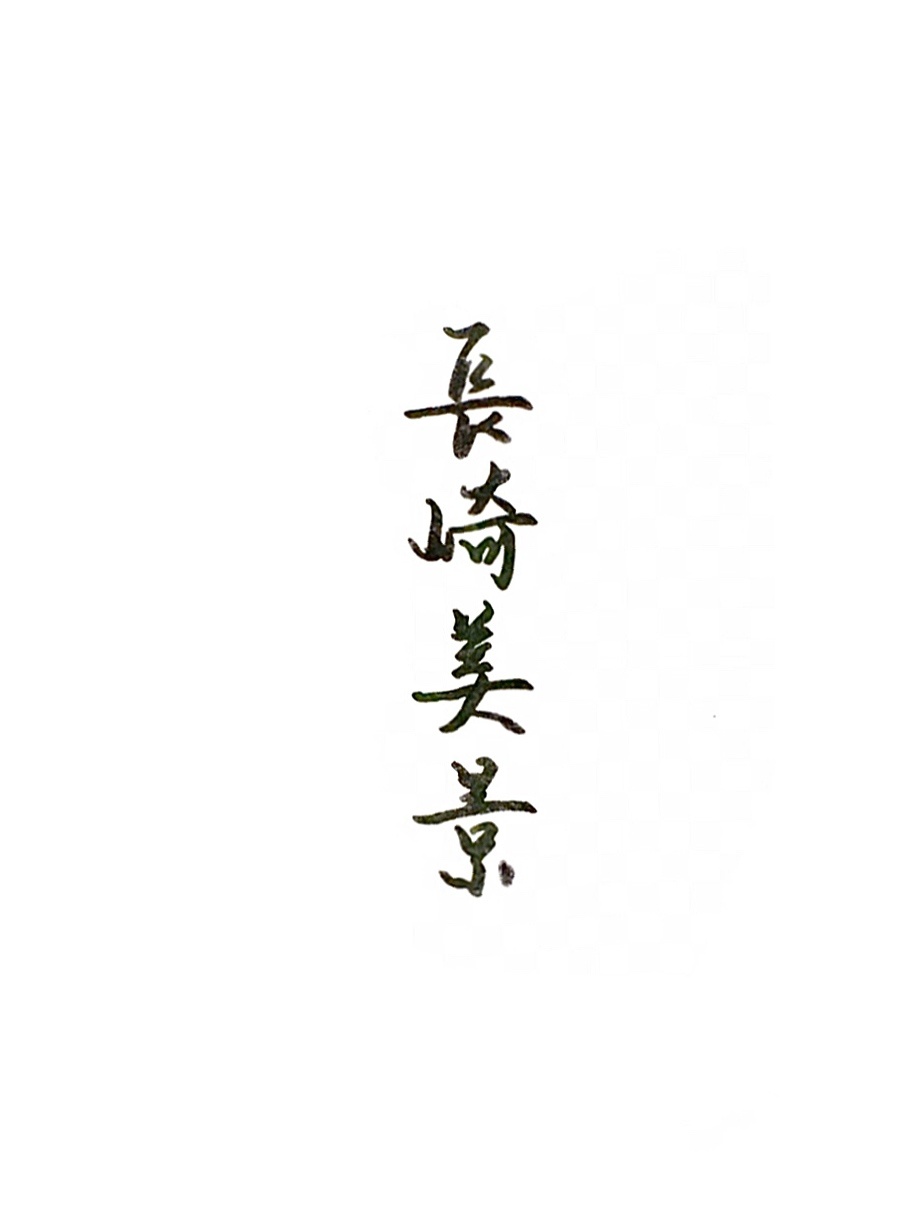 長崎美景